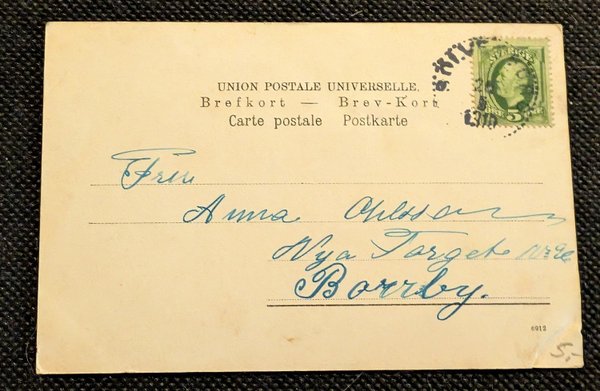 UNION POSTALE UNIVERSELLE.
Brefkort — Brev-Kort
Carte postale Postkarte
SVERIGE
5
1910
Fru
Anna Ohlsson
Nya Torget
Borrby.
6912
5:-